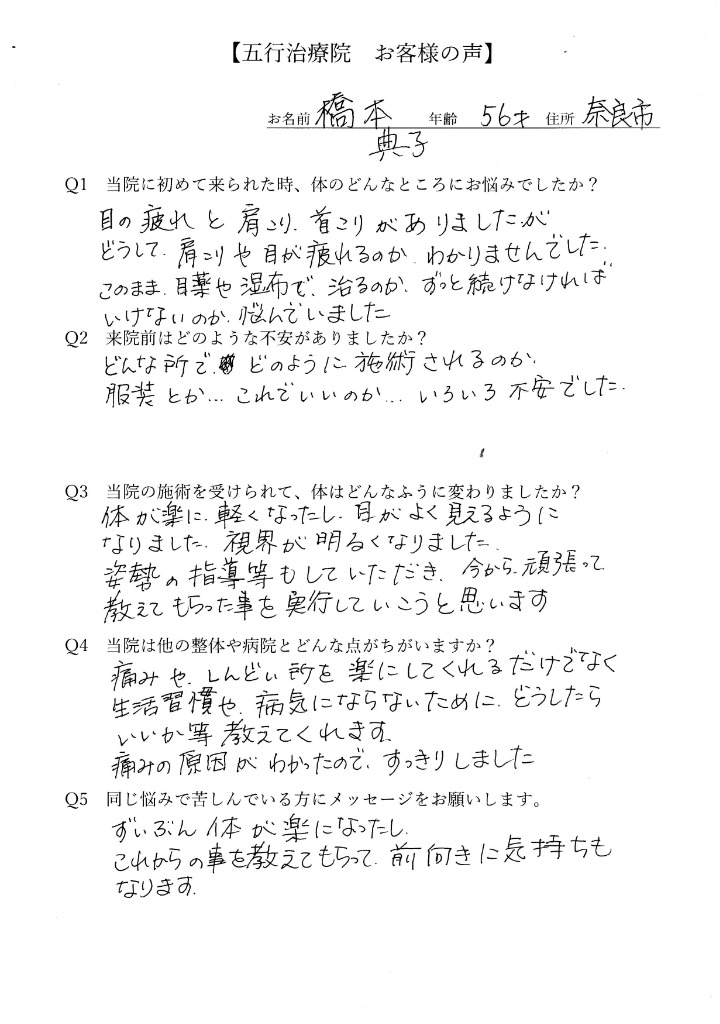 【五行治療院　お客様の声】
お名前 橋本 年齢 56才 住所 奈良市
典子
Q1　当院に初めて来られた時、体のどんなところにお悩みでしたか？
目の疲れと肩こり、首こりがありましたが
どうして、肩こりや目が疲れるのか、わかりませんでした。
このまま、目薬や湿布で、治るのか、ずっと続けなければ
いけないのか、悩んでいました
Q2　来院前はどのような不安がありましたか？
どんな所で、どのように施術されるのか、
服装とか…これでいいのか…いろいろ不安でした。
Q3　当院の施術を受けられて、体はどんなふうに変わりましたか？
体が楽に、軽くなったし、目がよく見えるように
なりました。視界が明るくなりました。
姿勢の指導等もしていただき、今から、頑張って
教えてもらった事を実行していこうと思います
Q4　当院は他の整体や病院とどんな点がちがいますか？
痛みや、しんどい所を楽にしてくれるだけでなく
生活習慣や、病気にならないために、どうしたら
いいか等教えてくれます。
痛みの原因がわかったので、すっきりしました
Q5　同じ悩みで苦しんでいる方にメッセージをお願いします。
ずいぶん体が楽になったし、
これからの事を教えてもらって、前向きに気持ちも
なります。